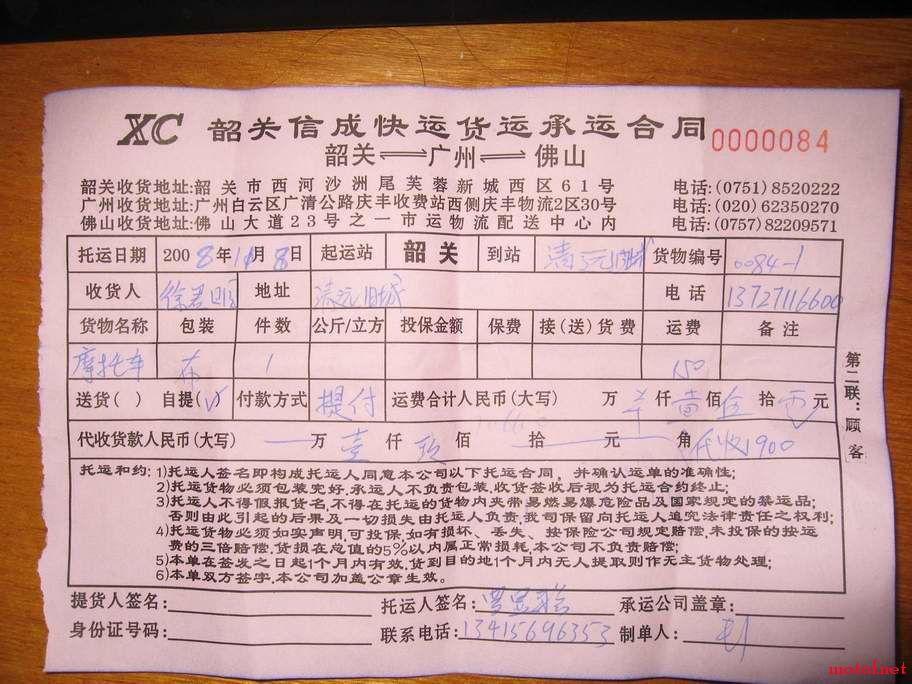 XC 韶关信成快运货运承运合同 0000084
韶关⇌广州⇌佛山
韶关收货地址:韶关市西河沙洲尾芙蓉新城西区61号 电话:(0751)8520222
广州收货地址:广州白云区广清公路庆丰收费站西侧庆丰物流2区30号 电话:(020)62350270
佛山收货地址:佛山大道23号之一市运物流配送中心内 电话:(0757)82209571
托运日期 2008年 月8日 起运站 韶关 到站 清远旧城 货物编号 0084-1
收货人 徐 地址 清远旧城 电话 13727116600
货物名称 包装 件数 公斤/立方 投保金额 保费 接(送)货费 运费 备注
摩托车 布 1 150
送货( ) 自提(√) 付款方式 提付 运费合计人民币(大写) 万 仟 壹佰 伍拾 元
代收货款人民币(大写) 万 壹仟 玖佰 拾 元 角 代收1900
第二联:顾客
托运和约:1)托运人签名即构成托运人同意本公司以下托运合同,并确认运单的准确性;
2)托运货物必须包装完好,承运人不负责包装,收货签收后视为托运合约终止;
3)托运人不得假报货名,不得在托运的货物内夹带易燃易爆危险品及国家规定的禁运品;
否则由此引起的后果及一切损失由托运人负责,我司保留向托运人追究法律责任之权利;
4)托运货物必须如实声明,可投保,如有损坏、丢失、按保险公司规定赔偿,未投保的按运
费的三倍赔偿,货损在总值的5%以内属正常损耗,本公司不负责赔偿;
5)本单在签发之日起1个月内有效,货到目的地1个月内无人提取则作无主货物处理;
6)本单双方签字,本公司加盖公章生效。
提货人签名: 托运人签名: 承运公司盖章:
身份证号码: 联系电话:13415696353 制单人:
motofnet